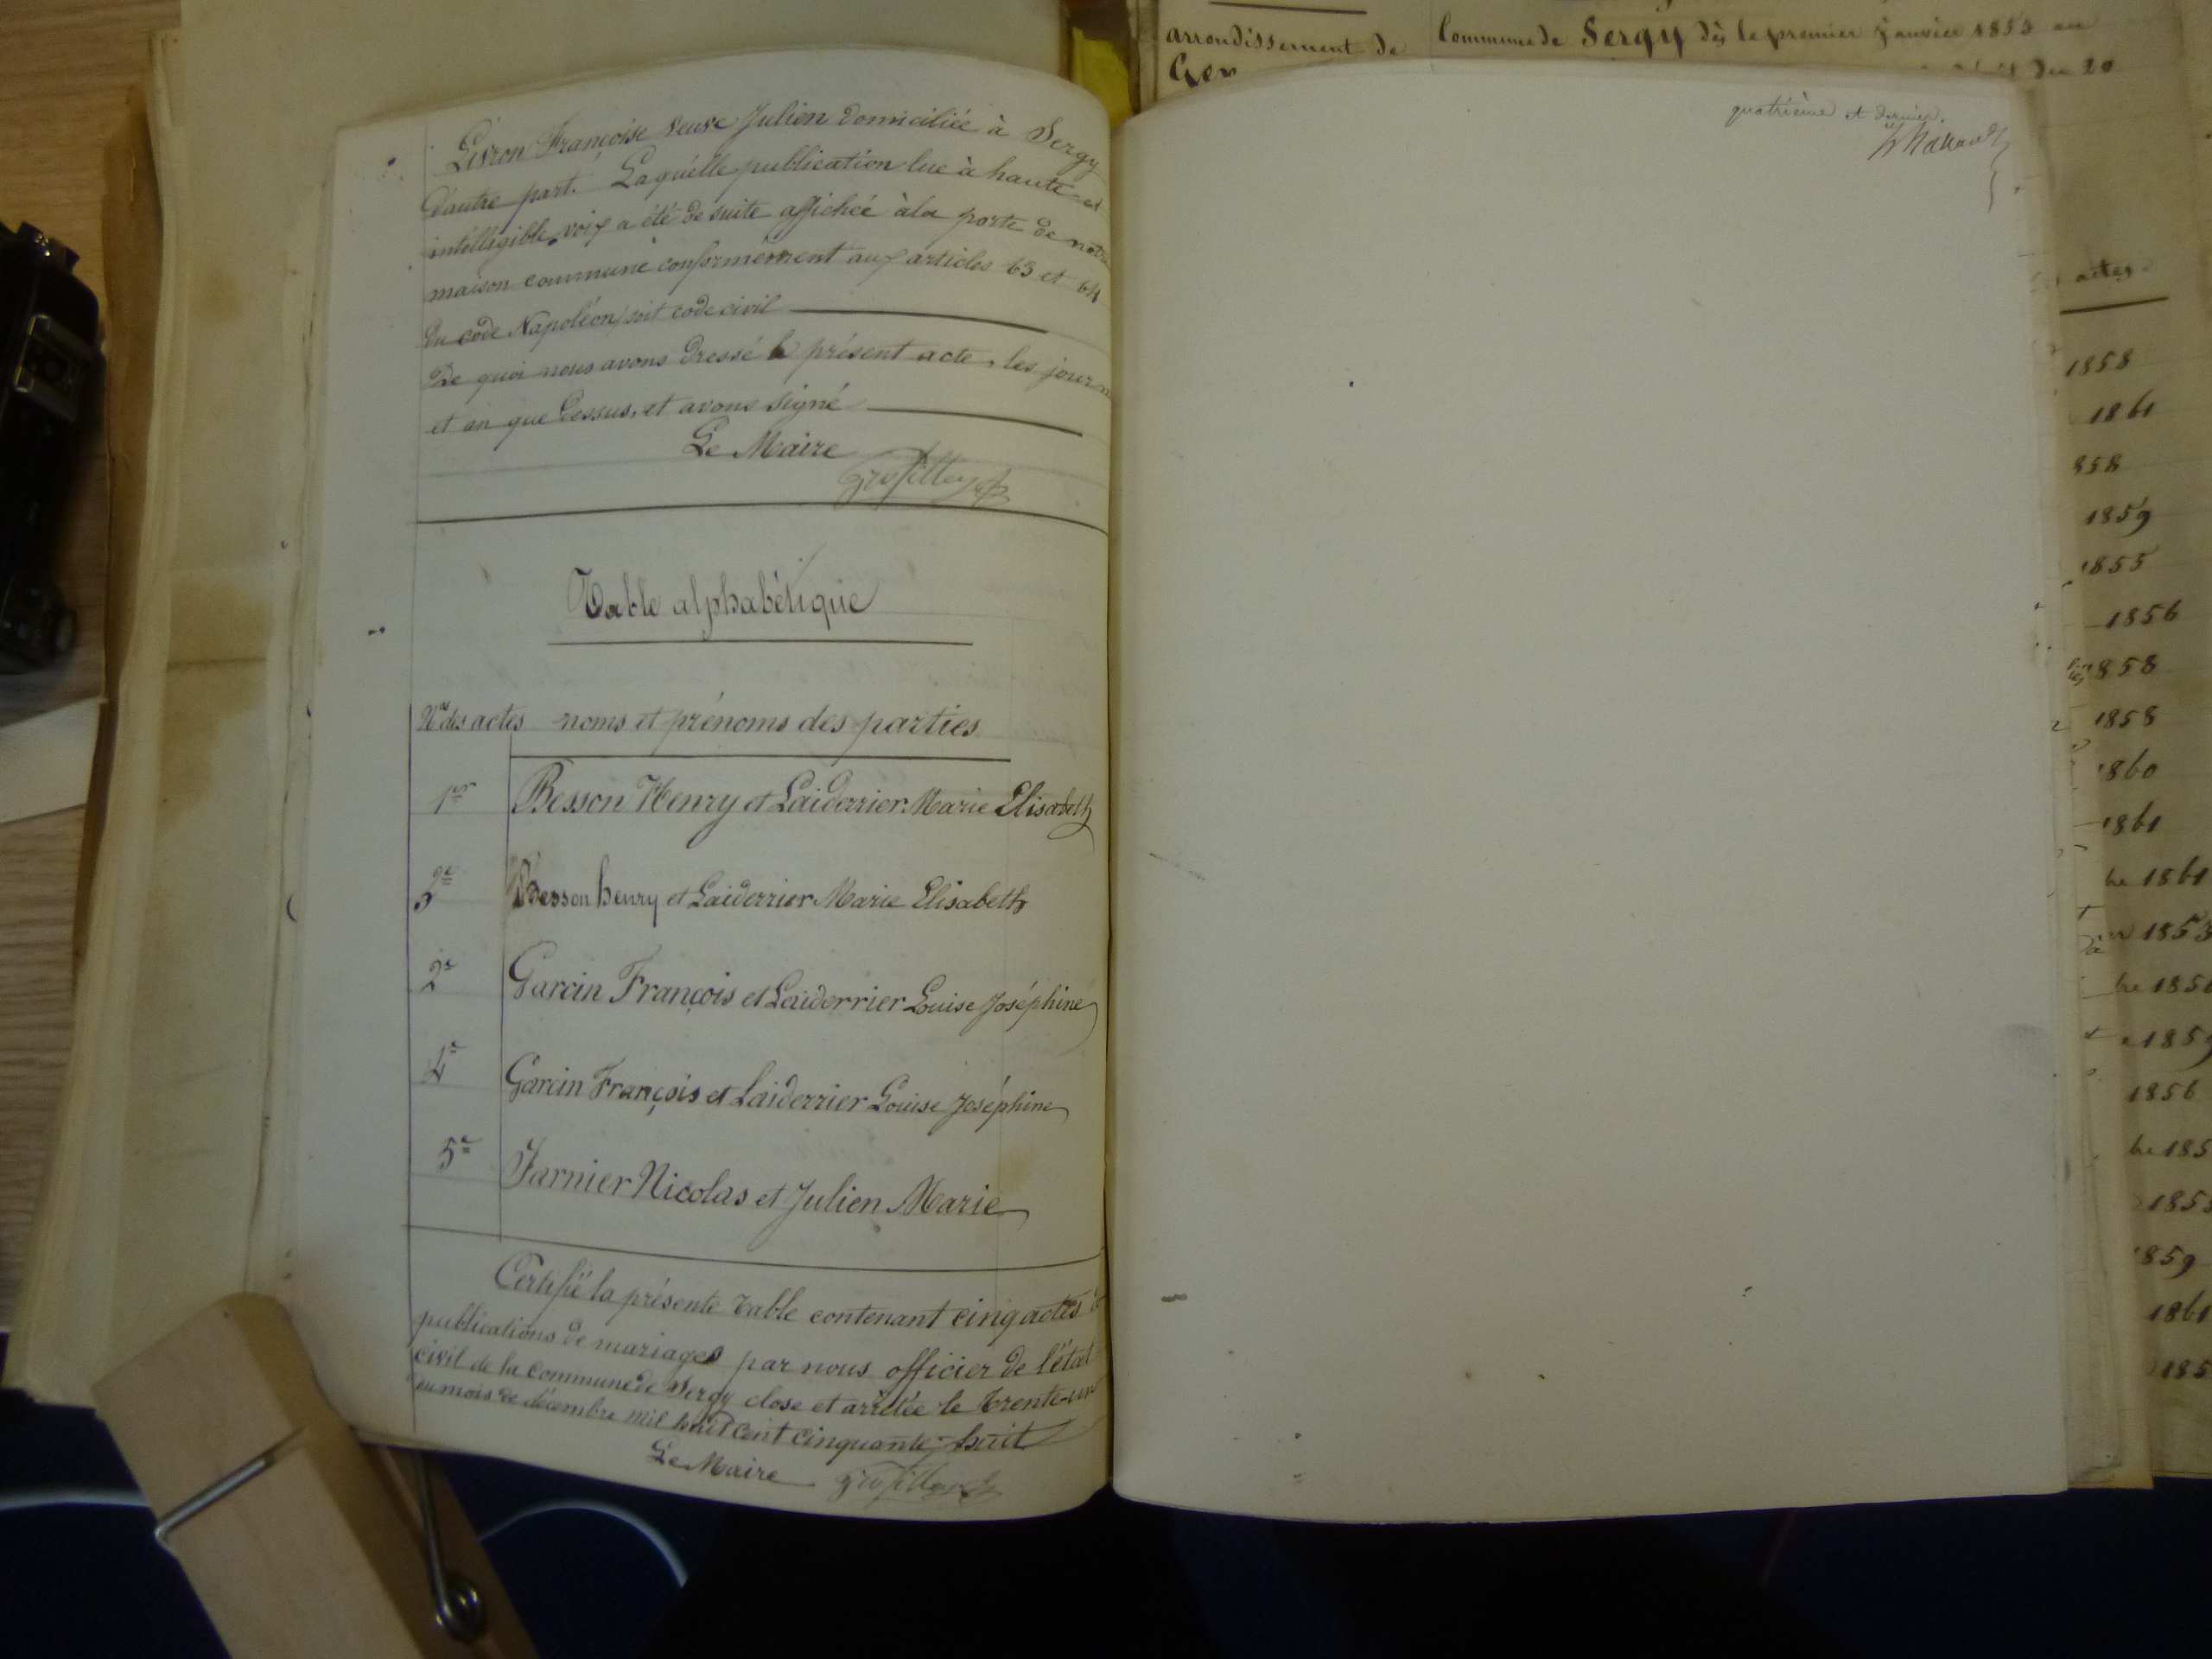 Livron Françoise veuve Julien domiciliée à Sergy
d'autre part. Laquelle publication lue à haute et
intélligible voix a été de suite affichée à la porte de notre
maison commune conformément aux articles 63 et 64
du code Napoléon, soit code civil
De quoi nous avons dressé le présent acte, les jour
et an que dessus, et avons signé
Le Maire
Table alphabétique
Nos des actes noms et prénoms des parties
1er Besson Henry et Laiderrier Marie Elisabeth
3e Besson henry et Laiderrier Marie Elisabeth
2e Garcin François et Laiderrier Louise Joséphine
4e Garcin François et Laiderrier Louise Joséphine
5e Jarnier Nicolas et Julien Marie
Certifié la présente table contenant cinq actes de
publications de mariages par nous officier de l'état
civil de la commune de Sergy close et arrêtée le trente-un
du mois de décembre mil huit cent cinquante-huit
Le Maire
quatrième et dernier.
arrondissement de
Gex
Commune de Sergy dès le premier janvier 1853 au
du 20
actes
1858
1861
858
1859
1855
1856
1858
1858
1860
1861
bre 1861
1853
bre 1856
1859
1856
bre 185
1855
1859
1861
185